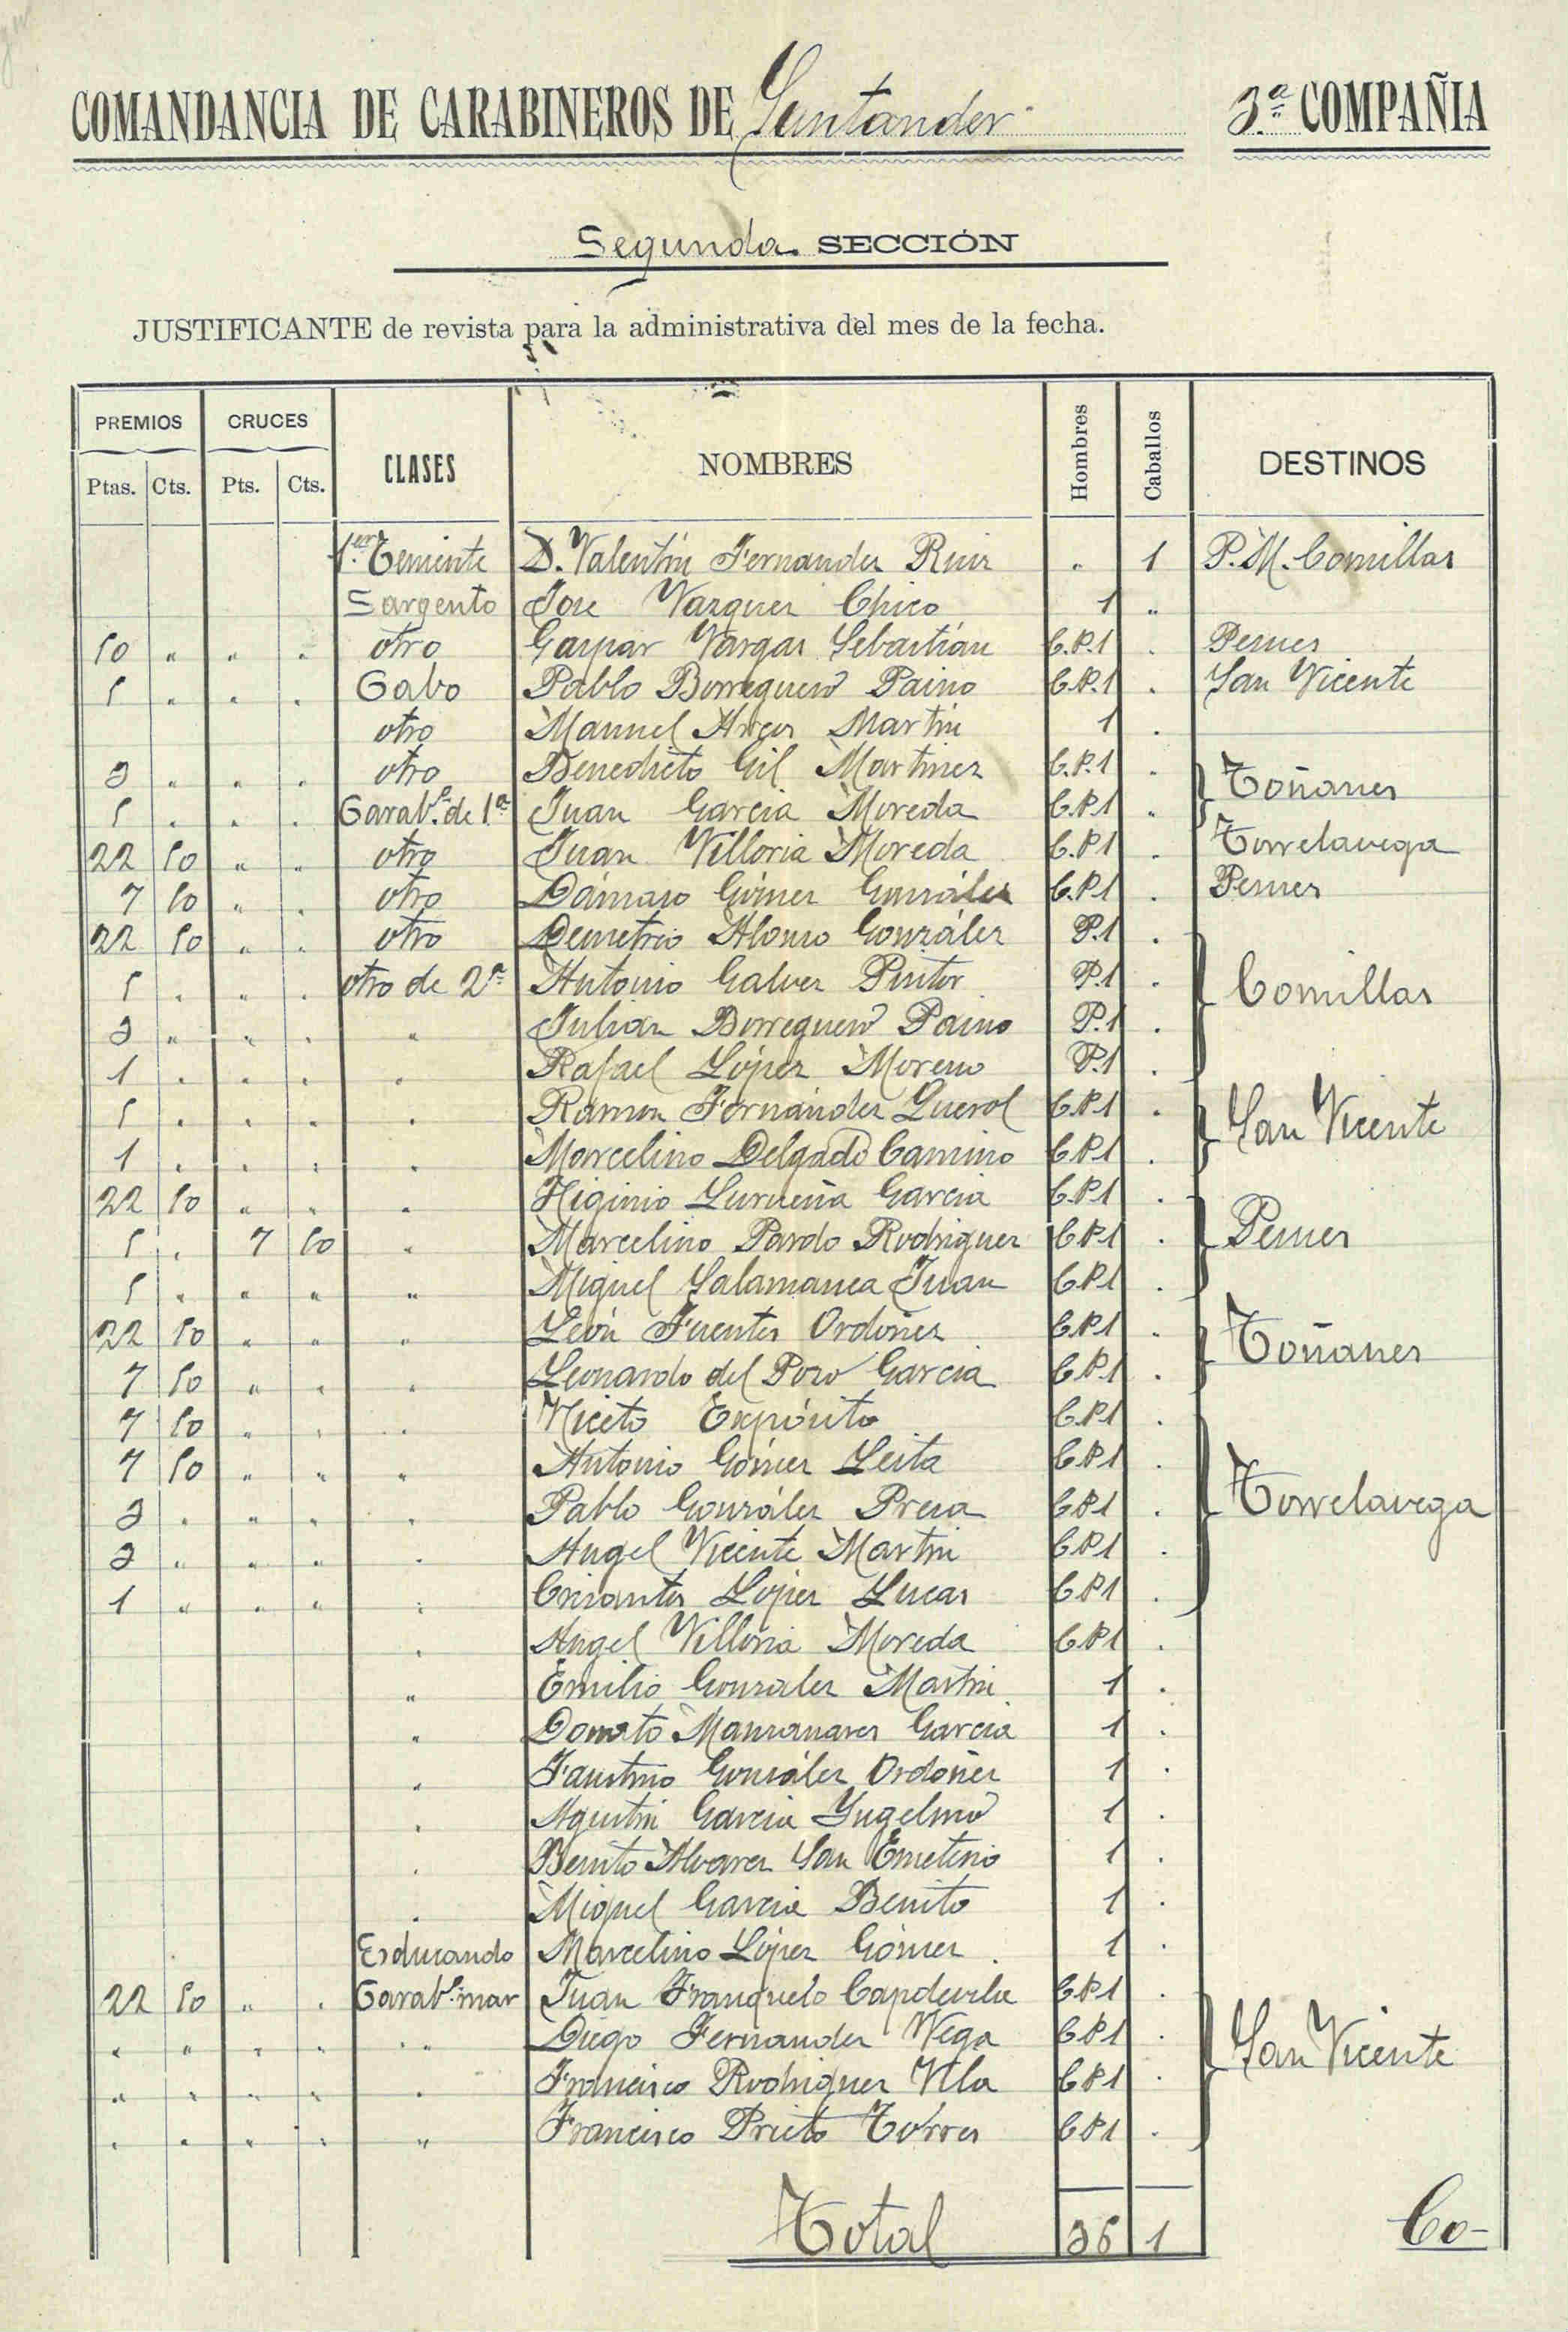 COMANDANCIA DE CARABINEROS DE Santander 3.ª COMPAÑIA
Segunda SECCIÓN
JUSTIFICANTE de revista para la administrativa del mes de la fecha.
PREMIOS CRUCES CLASES NOMBRES Hombres Caballos DESTINOS
Ptas. Cts. Pts. Cts.
1.er Teniente D. Valentín Fernandez Ruiz " 1 P.M. Comillas
Sargento Jose Vazquez Chico 1 "
50 " " " otro Gaspar Vargas Sebastián C.P.1 . Pesues
5 " . . Cabo Pablo Borreguero Paino C.P.1 . San Vicente
otro Manuel Arcos Martin 1 .
3 . . . otro Benedicto Gil Martinez C.P.1 .
Toñanes
5 . . . Carab.º de 1.ª Juan Garcia Moreda C.P.1 "
22 50 " . otro Juan Villoria Moreda C.P.1 . Torrelavega
7 50 " . otro Dámaso Gómez González C.P.1 . Pesues
22 50 " . otro Demetrio Alonso González P.1 .
5 . " . otro de 2.ª Antonio Galvez Pintor P.1 .
Comillas
3 " " . " Julián Borreguero Paino P.1 .
1 . . . . Rafael López Moreno P.1 .
5 . . " . Ramon Fernández Querol C.P.1 .
San Vicente
1 . . . . Marcelino Delgado Camino C.P.1 .
22 50 " " " Higinio Lurueña Garcia C.P.1 .
5 . 7 50 " Marcelino Pardo Rodriguez C.P.1 .
Pesues
5 " " " " Miguel Salamanca Juan C.P.1 .
22 50 " " " León Fuentes Ordoñez C.P.1 "
Toñanes
7 50 " " " Leonardo del Pozo Garcia C.P.1 .
7 50 " . . Niceto Expósito C.P.1 .
7 50 " " " Antonio Gómez Leita C.P.1 .
Torrelavega
3 . " . . Pablo González Presa C.P.1 .
3 " " " . Angel Vicente Martin C.P.1 .
1 " " " : Crisantos López Lucas C.P.1 .
. Angel Villoria Moreda C.P.1 .
" Emilio Gonzalez Martin 1 .
" Donato Manzanares Garcia 1 .
" Faustino González Ordoñez 1 .
. Agustin Garcia Yugelmo 1 .
. Benito Alvarez San Emeterio 1 .
. Miguel Garcia Benito 1 .
Educando Marcelino López Gómez 1 .
22 50 " . Carab.º mar Juan Franquelo Capdevila C.P.1 .
" " " " " Diego Fernandez Vega C.P.1 .
San Vicente
" " " " . Francisco Rodriguez Vila C.P.1 .
. " " " " Francisco Prieto Torres C.P.1 .
Total 36 1 Co-